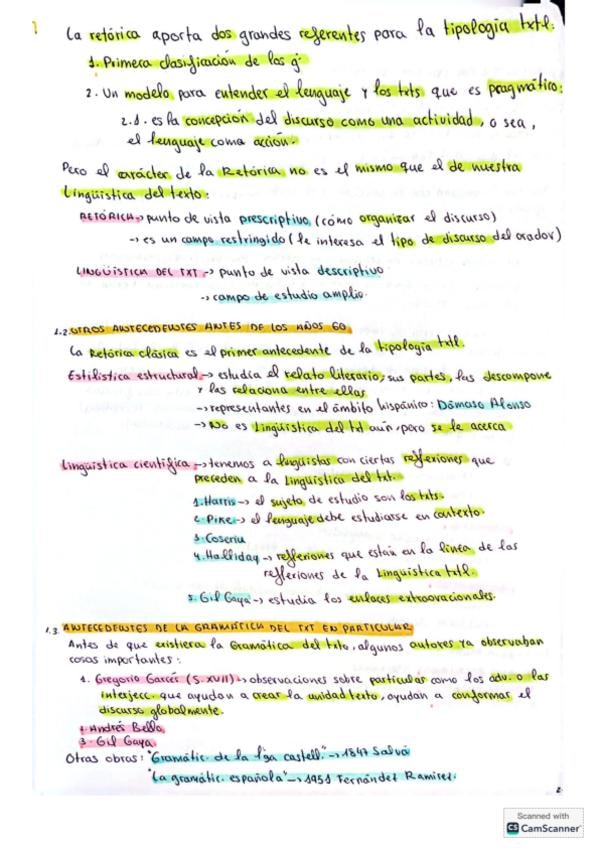 La retórica aporta dos grandes referentes para la tipología txtl:
1. Primera clasificación de los g.
2. Un modelo para entender el lenguaje y los txts que es pragmático:
2.1. es la concepción del discurso como una actividad, o sea,
el lenguaje como acción.
Pero el carácter de la Retórica no es el mismo que el de nuestra
Lingüística del texto:
RETÓRICA → punto de vista prescriptivo (cómo organizar el discurso)
→ es un campo restringido (le interesa el tipo de discurso del orador)
LINGÜÍSTICA DEL TXT → punto de vista descriptivo
→ campo de estudio amplio.
1.2. OTROS ANTECEDENTES ANTES DE LOS AÑOS 60
La Retórica clásica es el primer antecedente de la tipología txtl.
Estilística estructural → estudia el relato literario, sus partes, las descompone
y las relaciona entre ellas
→ representantes en el ámbito hispánico: Dámaso Alonso
→ No es Lingüística del txt aún, pero se le acerca
Lingüística científica → tenemos a lingüistas con ciertas reflexiones que
preceden a la Lingüística del txt.
1. Harris → el sujeto de estudio son los txts.
2. Pike → el lenguaje debe estudiarse en contexto.
3. Coseriu
4. Halliday → reflexiones que están en la línea de las
reflexiones de la Lingüística txtl.
5. Gil Gaya → estudia los enlaces extraoracionales.
1.3. ANTECEDENTES DE LA GRAMÁTICA DEL TXT EN PARTICULAR
Antes de que existiera la Gramática del txto, algunos autores ya observaban
cosas importantes:
1. Gregorio Garcés (S. XVII) → observaciones sobre particular como los adv. o las
interjecc. que ayudan a crear la unidad texto, ayudan a conformar el
discurso globalmente.
2. Andrés Bello
3. Gil Gaya.
Otras obras: "Gramátic. de la lga castell." → 1847 Salvá
"La gramátic. española" → 1951 Fernández Ramírez.
2
Scanned with
CS CamScanner